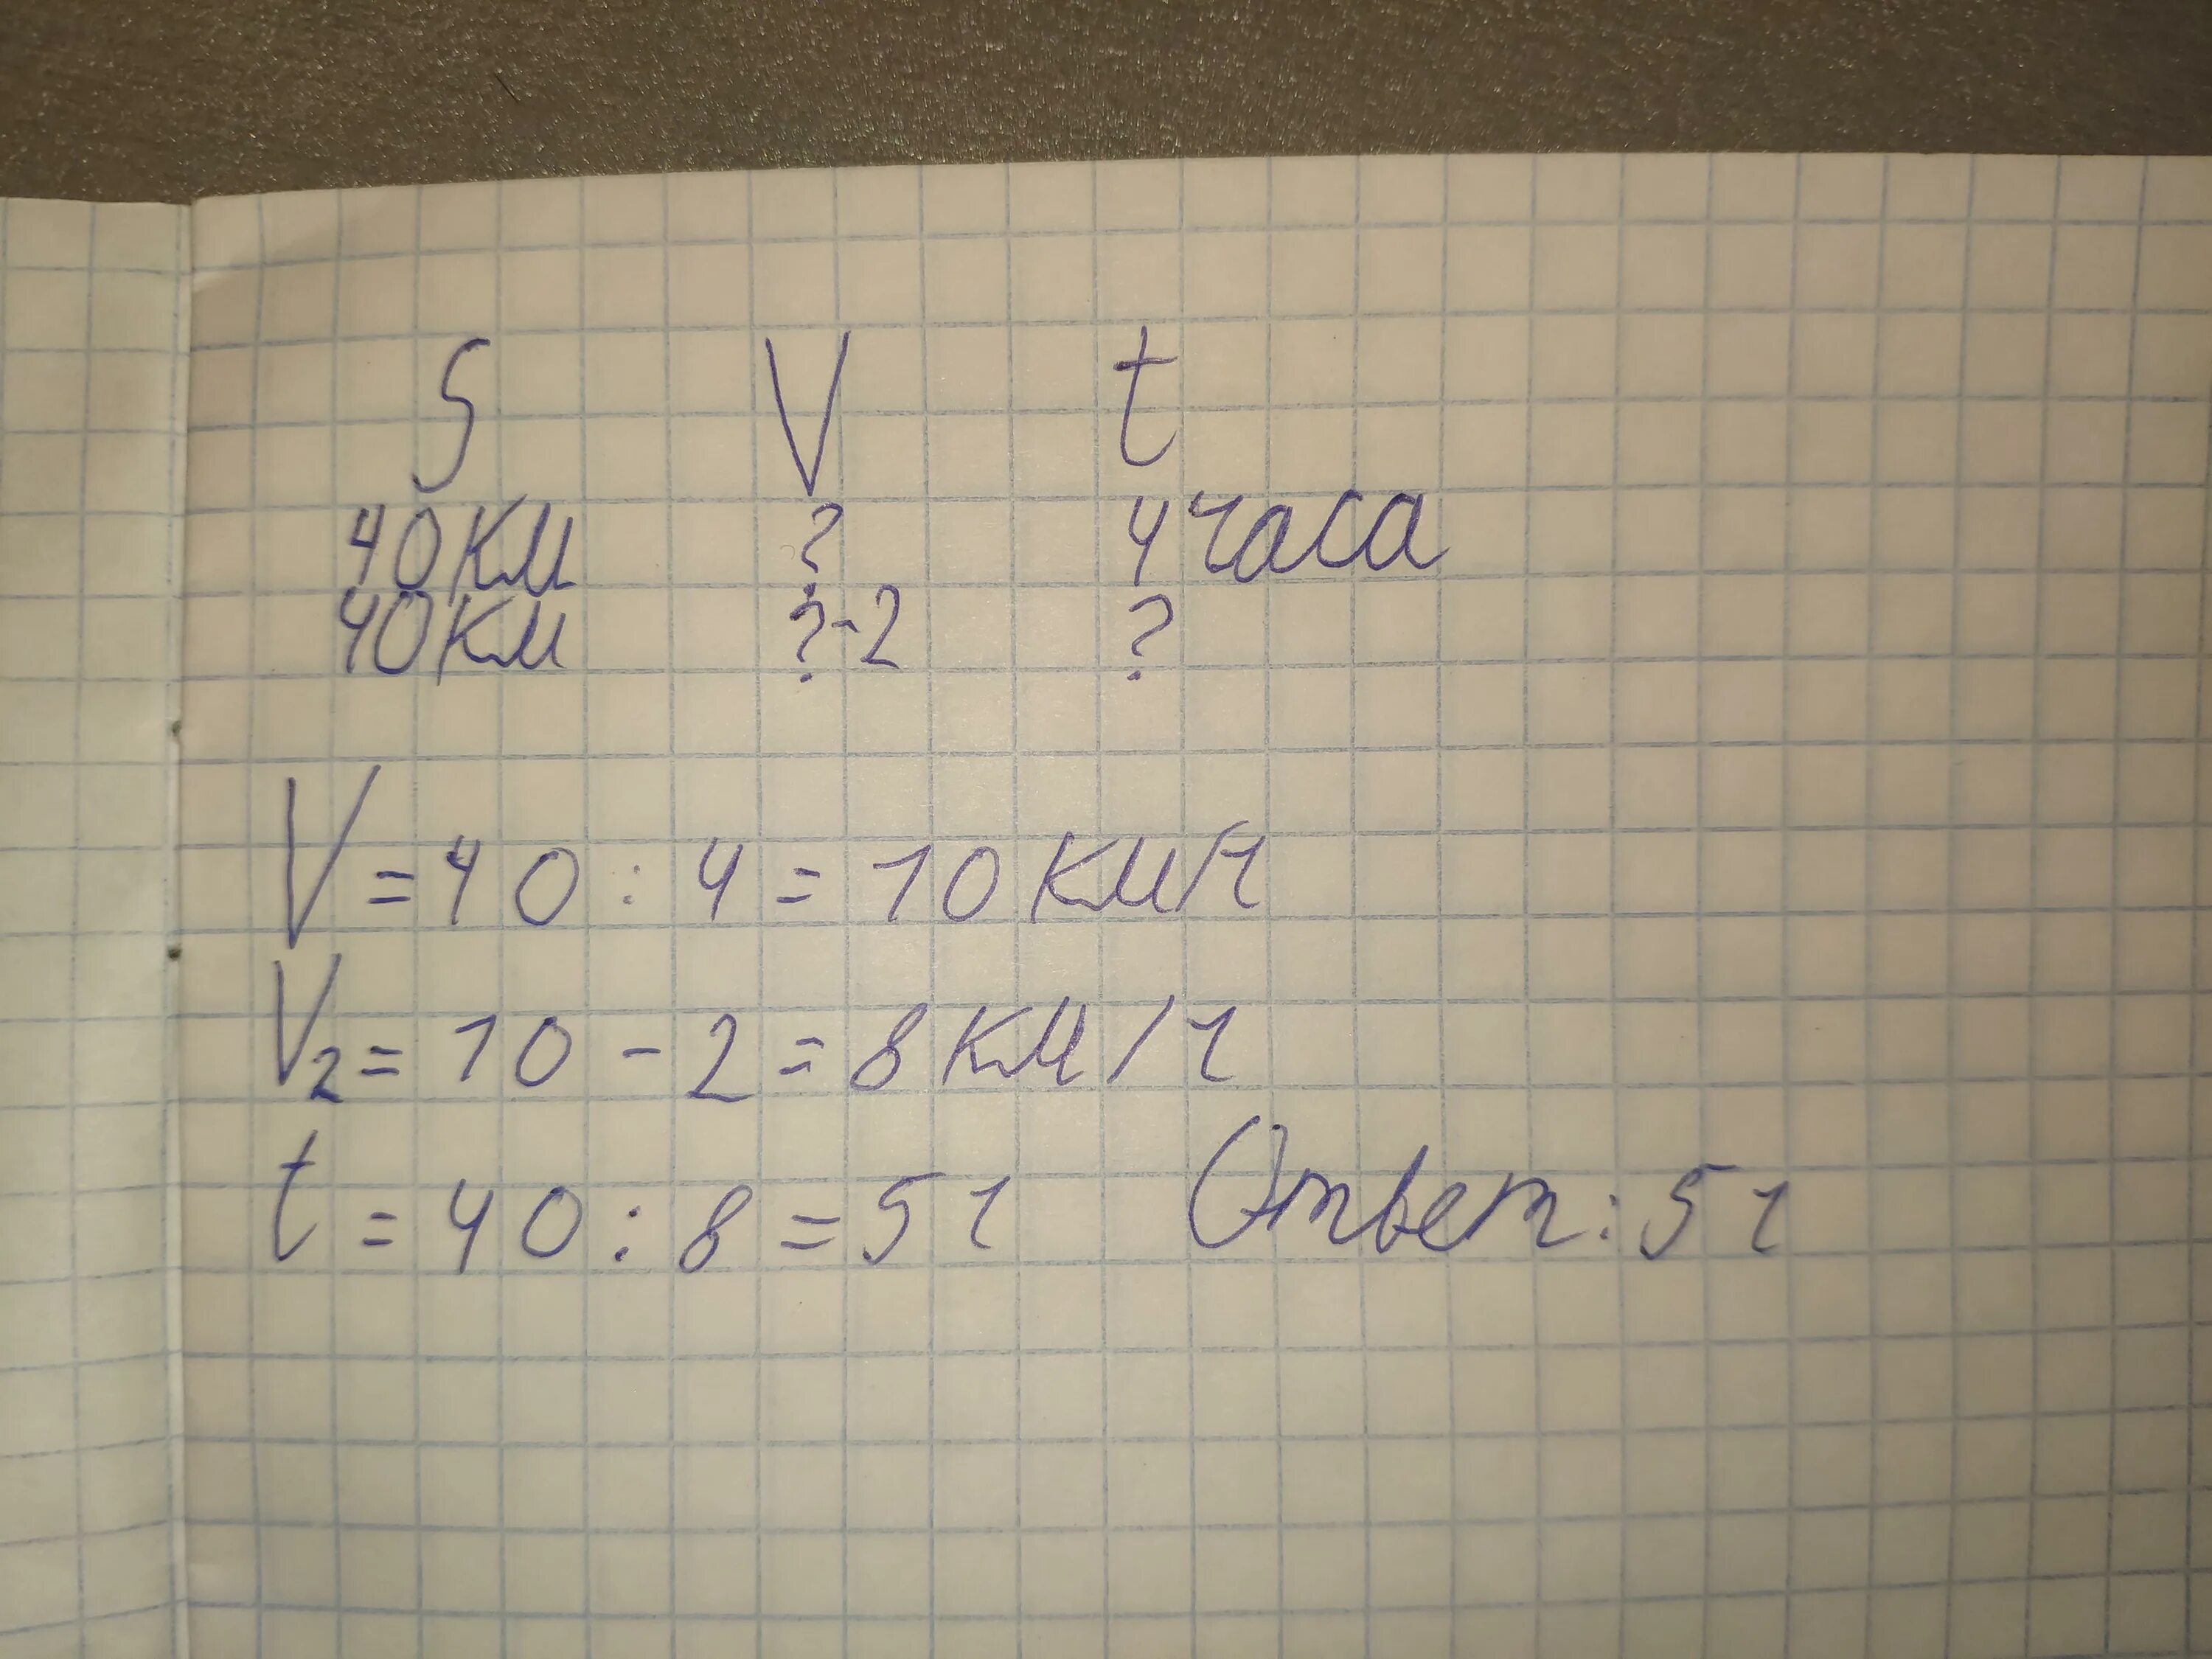 S V t
40км ? 4 часа
40км ?-2 ?
V = 40 : 4 = 10 км/ч
V2 = 10 - 2 = 8 км/ч
t = 40 : 8 = 5 ч Ответ: 5 ч